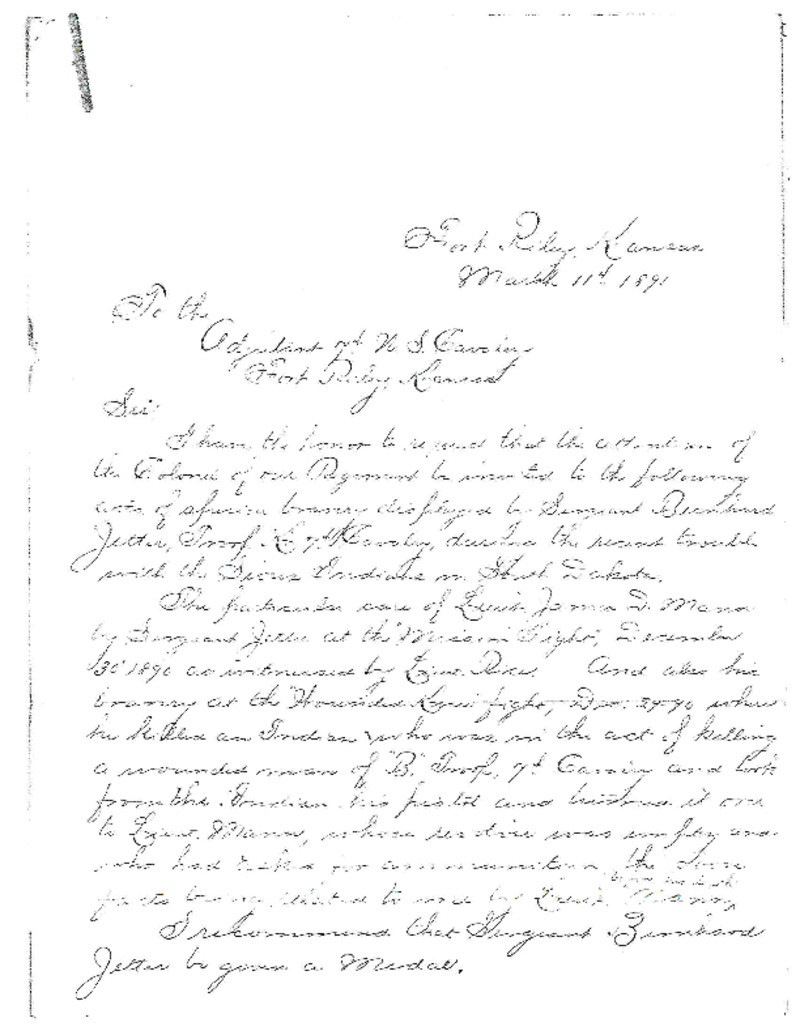 Fort Riley, Kansas
March 11th 1891
To the
Adjutant 7th U. S. Cavalry
Fort Riley, Kansas
Sir:
I have the honor to request that the attention of
the Colonel of our Regiment be invited to the following
acts of bravery displayed by Sergeant Bernhard
Jetter, Troop K 7th Cavalry, during the recent trouble
with the Sioux Indians in South Dakota.
The particular care of Lieut. James D. Mann
by Sergeant Jetter at the "Mission Fight," December
30" 1890 as witnessed by Lieut. Rice. And also his
bravery at the Wounded Knee fight, Dec. 29-90 where
he killed an Indian who was in the act of killing
a wounded man of "B" Troop, 7th Cavalry and took
from the Indian his pistol and it
to Lieut. Mann, whose was empty and
who had asked for ammunition, the above
before his death
facts being related to me by Lieut. Mann,
I recommend that Sergeant Bernhard
Jetter be given a Medal.